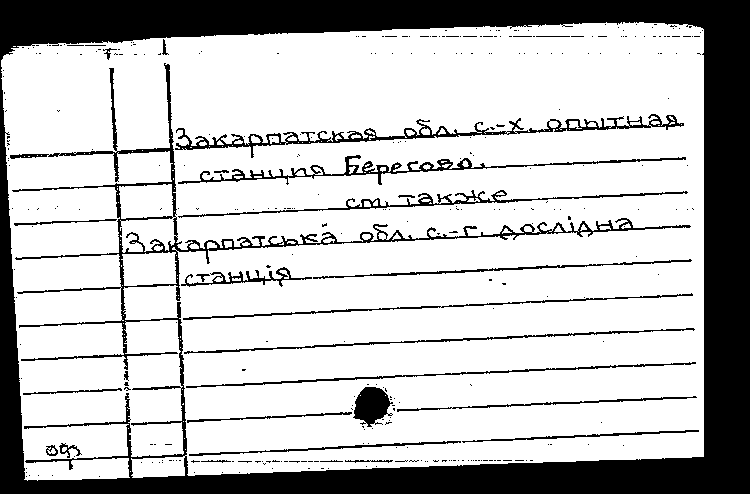 Закарпатская обл. с.-х. опытная
станция Берегово.
см. также
Закарпатська обл. с.-г. дослідна
станція